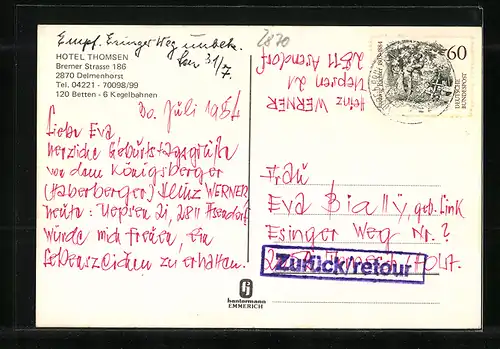 Empf. Esinger Weg unbek.
31/7.
HOTEL THOMSEN
Bremer Strasse 186
2870 Delmenhorst
Tel. 04221 - 70098/99
120 Betten - 6 Kegelbahnen
2870
Heinz WERNER
Uepsen 21
2811 Asendorf
60
DEUTSCHE
BUNDESPOST
30. Juli 1984
Liebe Eva
herzliche Geburtstagsgrüße
von dem Königsberger
(Haberberger) Heinz WERNER
heute: Uepsen 21, 2811 Asendorf
Würde mich freuen, ein
Lebenszeichen zu erhalten.
Frau
Eva Bially, geb. Link
Esinger Weg Nr. ?
Zurück/retour
hantermann
EMMERICH